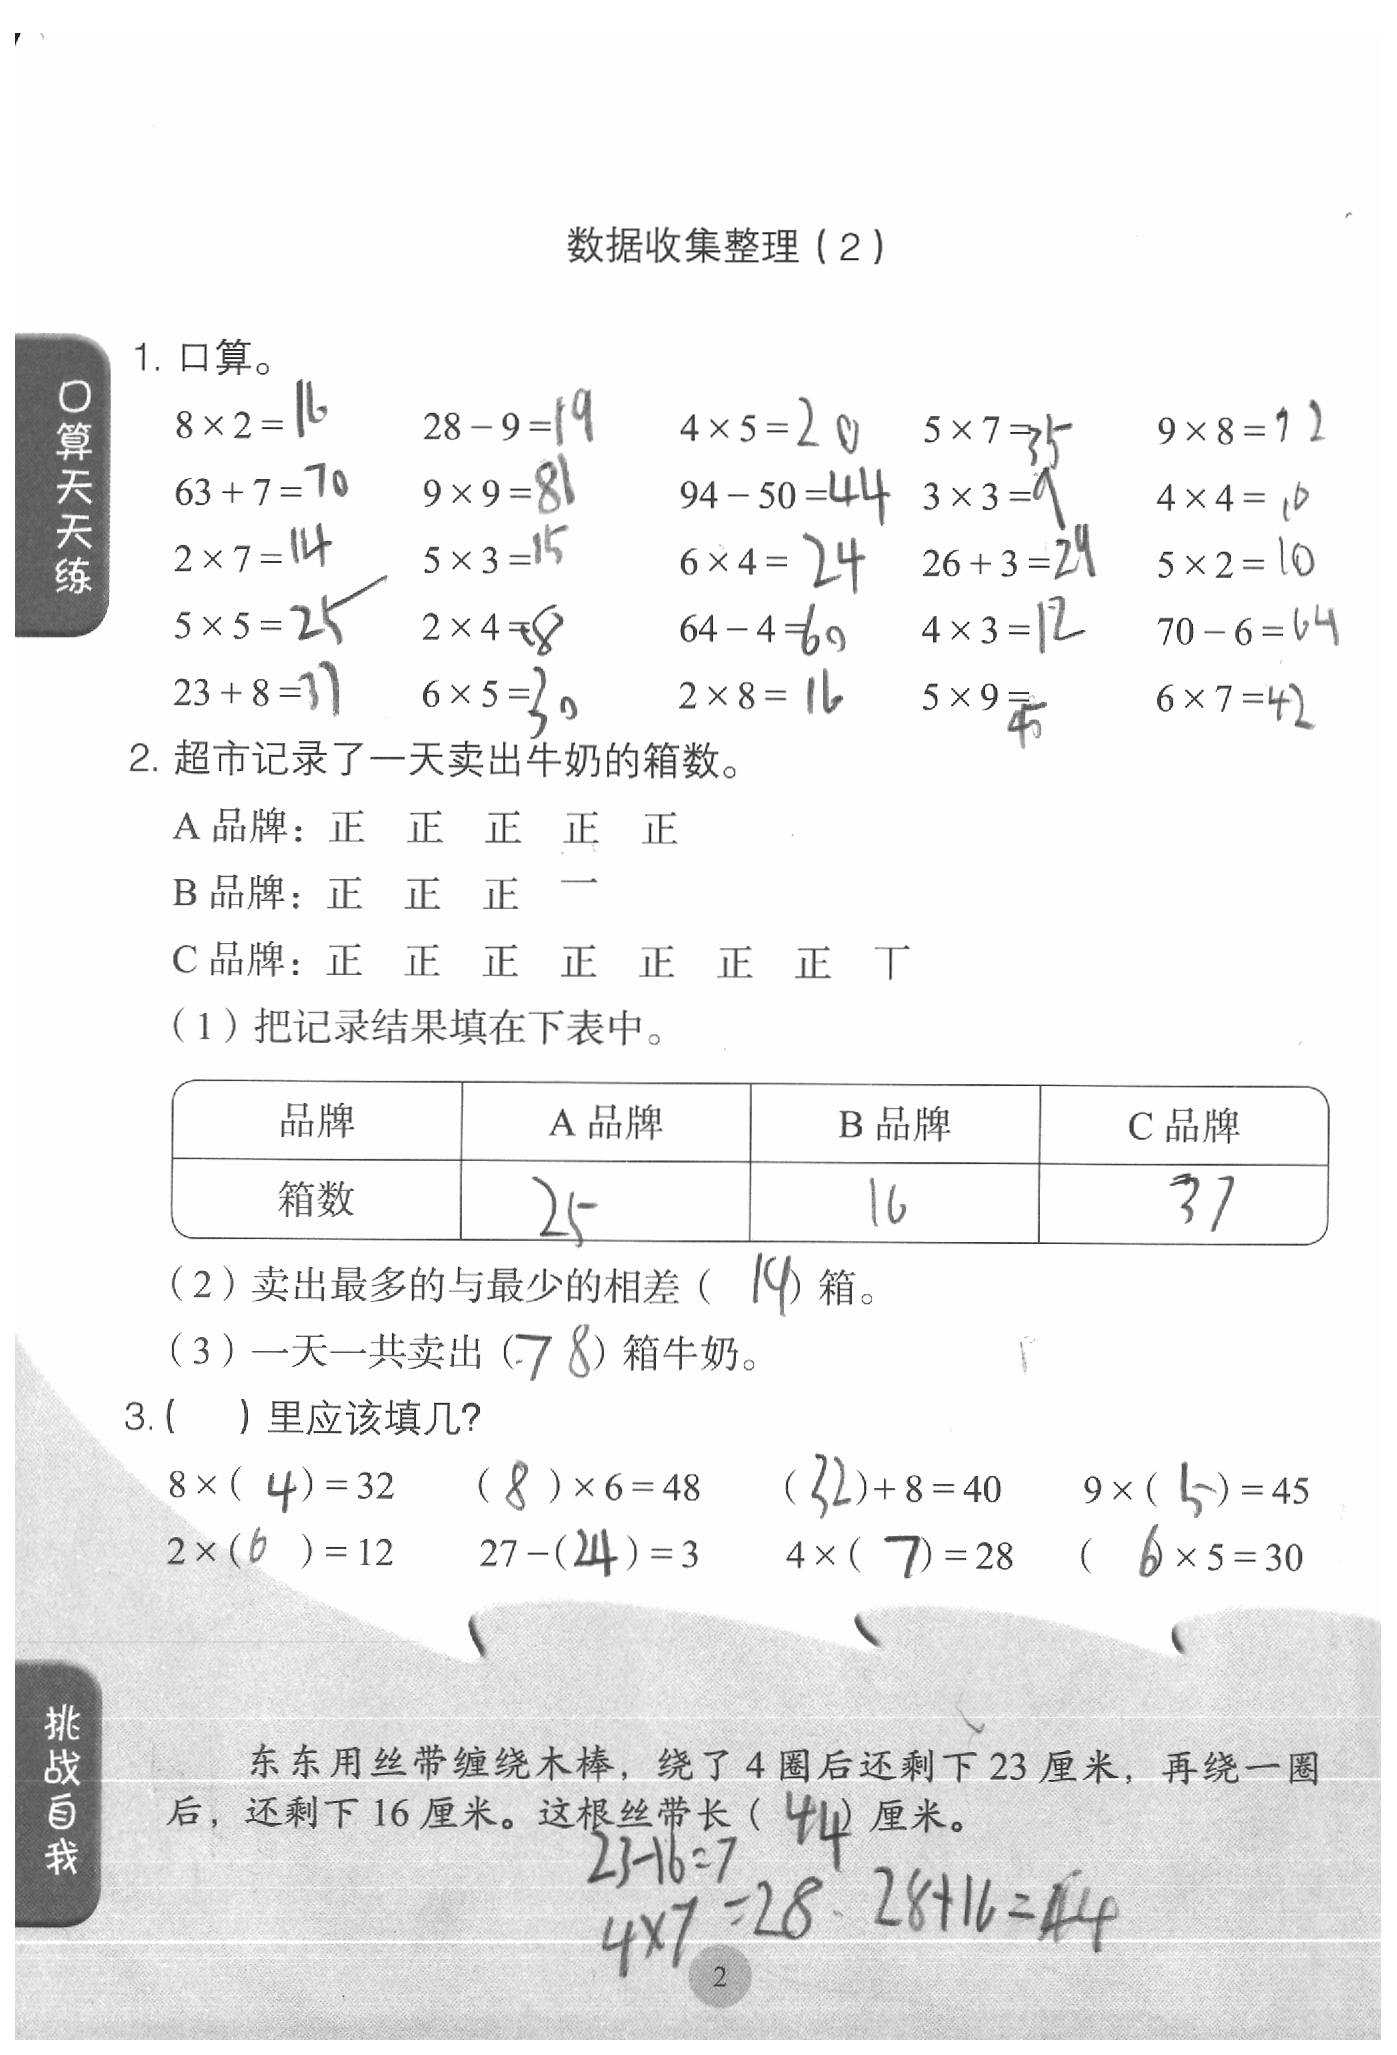 数据收集整理(2)
口算天天练
1. 口算。
8×2=16 28-9=19 4×5=20 5×7=35 9×8=72
63+7=70 9×9=81 94-50=44 3×3=9 4×4=16
2×7=14 5×3=15 6×4=24 26+3=29 5×2=10
5×5=25 2×4=8 64-4=60 4×3=12 70-6=64
23+8=31 6×5=30 2×8=16 5×9=45 6×7=42
2. 超市记录了一天卖出牛奶的箱数。
A 品牌：正 正 正 正 正
B 品牌：正 正 正 一
C 品牌：正 正 正 正 正 正 正 丅
(1) 把记录结果填在下表中。
品牌 A 品牌 B 品牌 C 品牌
箱数 25 16 37
(2) 卖出最多的与最少的相差(14)箱。
(3) 一天一共卖出(78)箱牛奶。
3. ( )里应该填几?
8×(4)=32 (8)×6=48 (32)+8=40 9×(5)=45
2×(6)=12 27-(24)=3 4×(7)=28 (6×5=30
挑战自我
东东用丝带缠绕木棒，绕了 4 圈后还剩下 23 厘米，再绕一圈
后，还剩下 16 厘米。这根丝带长(44)厘米。
23-16=7
4×7=28. 28+16=44
2